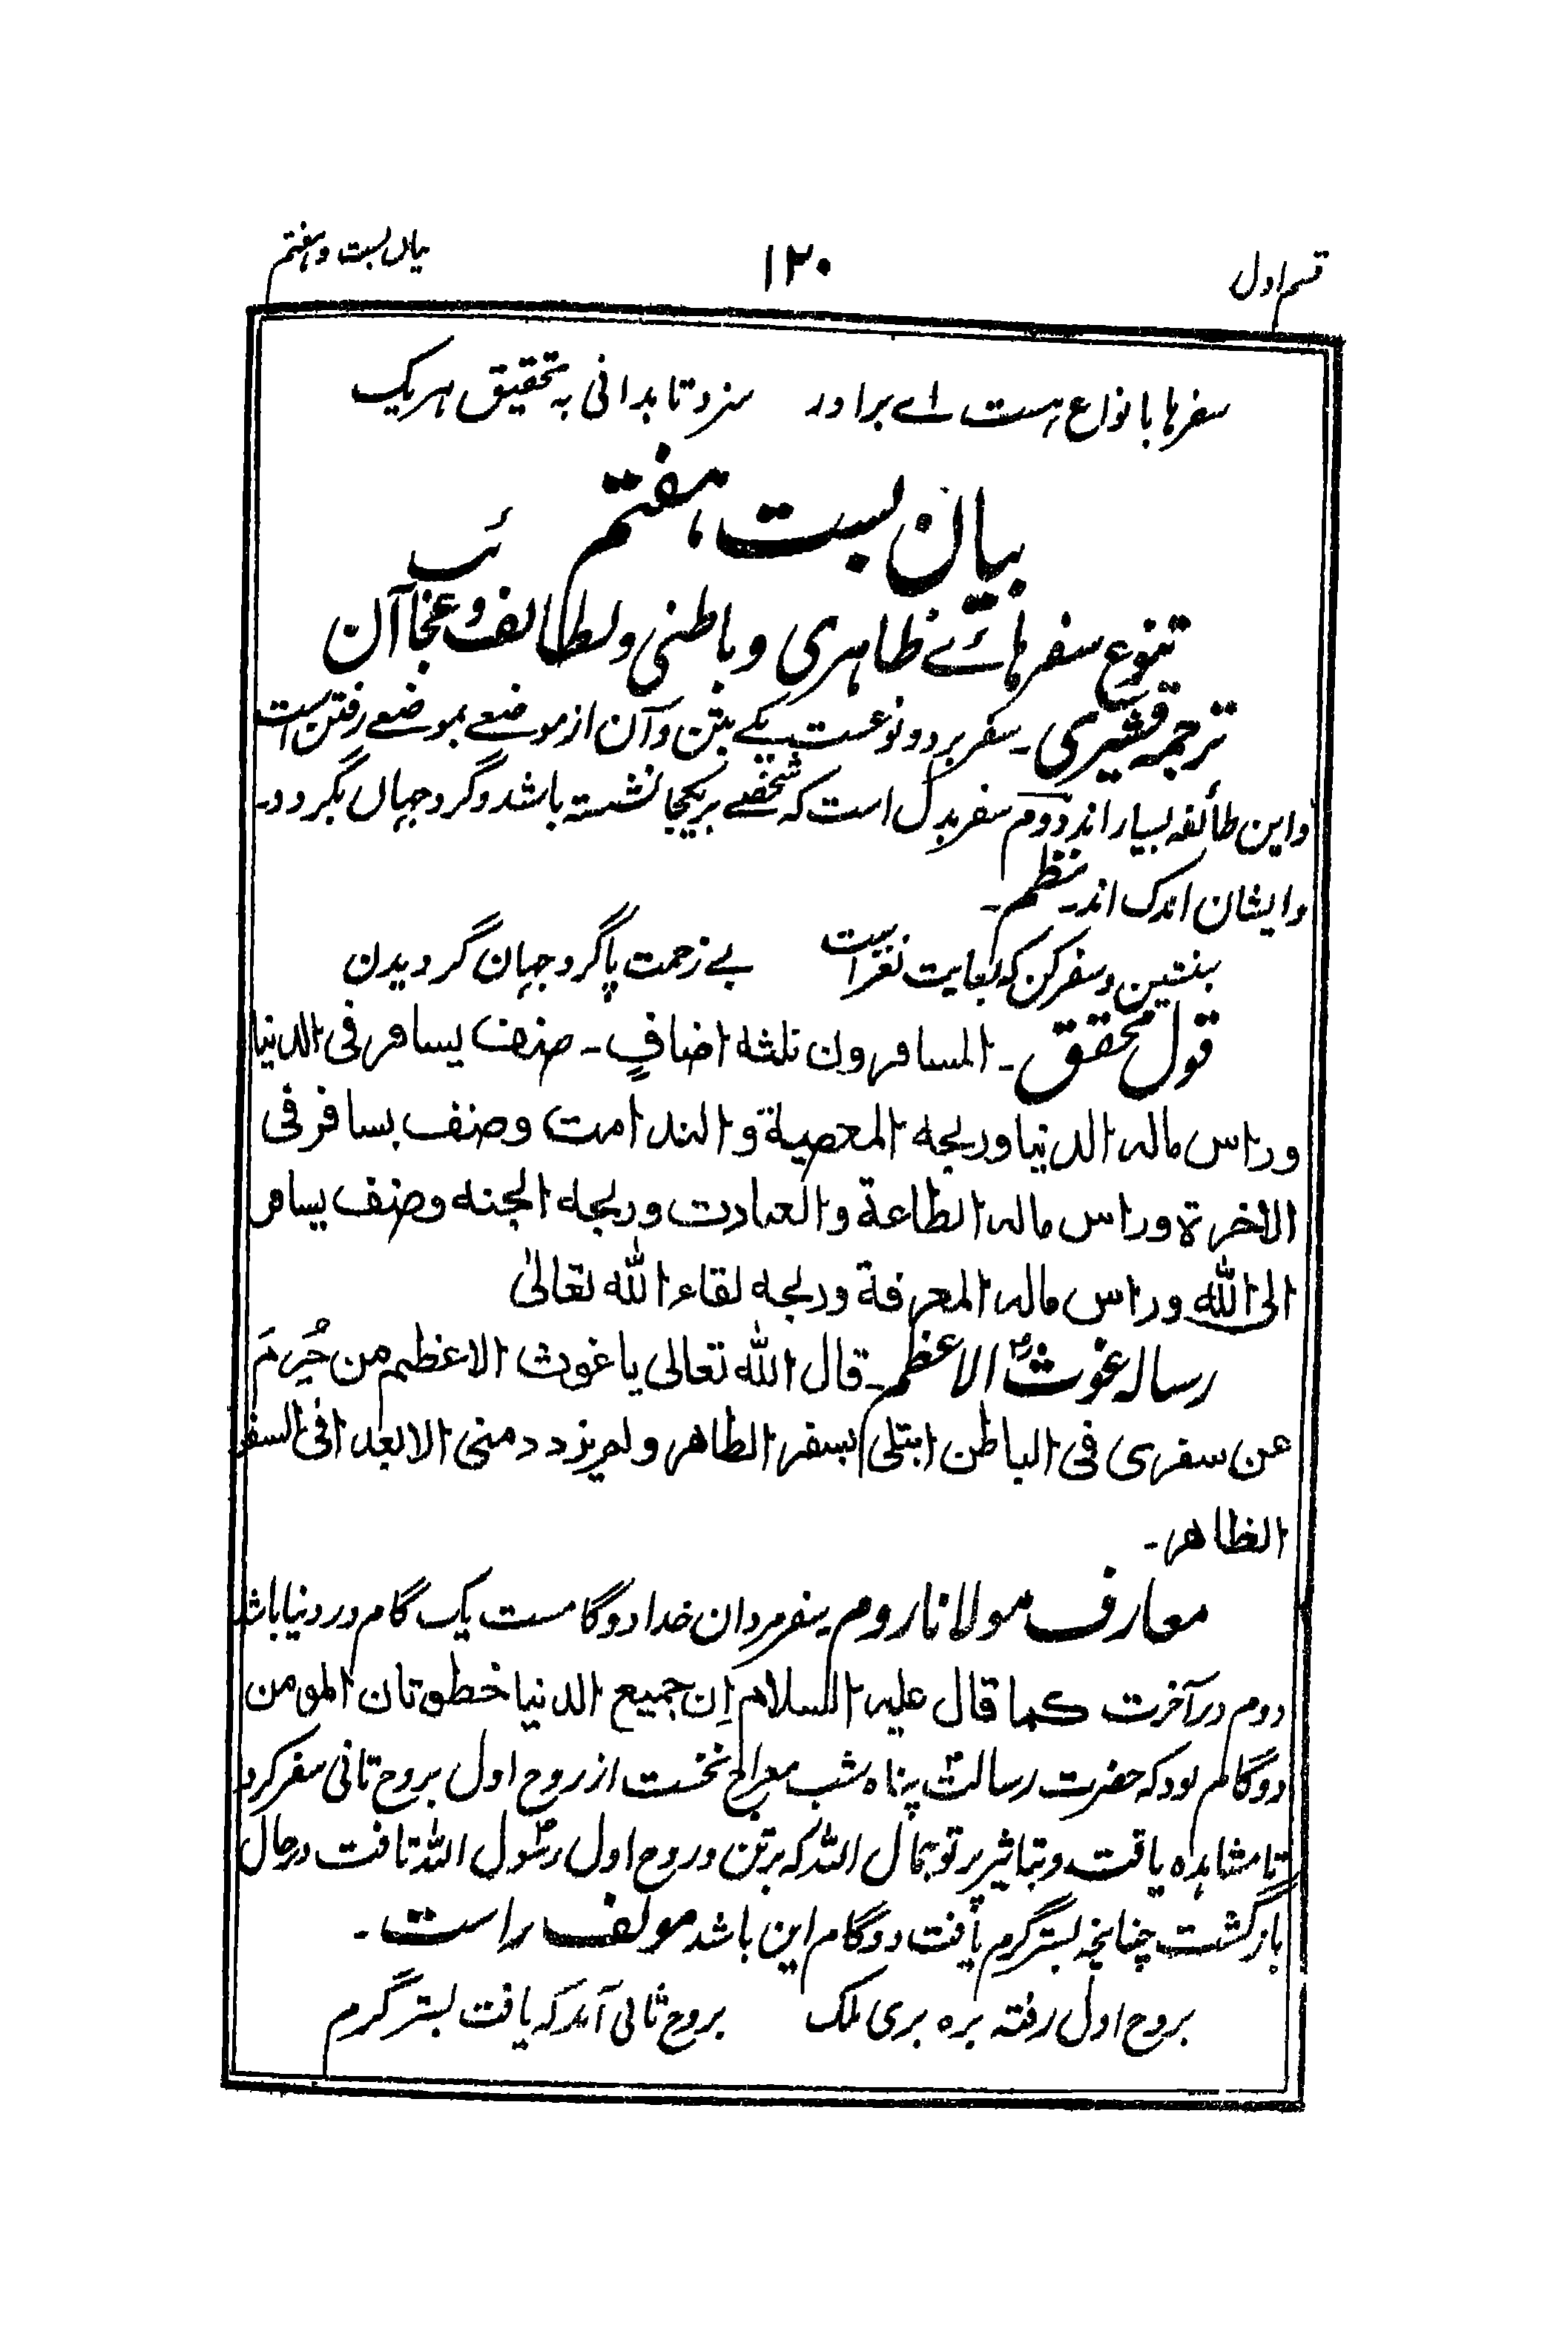 قسم اول ۱۲۰ بیان بست وهفتم
سفرها بانواع هست اے برادر سزد تا بدانی به تحقیق هریک
بیان بست هفتم
تنوع سفرهائے ظاهری و باطنی و لطائف و عجائب آن
ترجمه قشیری ۔ سفر بر دو نوعست یکے بتن و آن از موضعے بموضعے رفتن است
و این طائفه بسیار اند دوم سفر بدل است که شخصے بریکجا نشسته باشد و گرد جهان بگردد۔
و ایشان اندک اند۔ نظم۔
بنشین و سفر کن که بغایت نغزاست بے زحمت پا گرد جهان گردیدن
قول محقق ۔ المسافرون ثلثه اضافٍ ۔ صنف یسافر فی الدنیا
وراس ماله الدنیا وربحه المعصیة و الندامت وصنف یسافر فی
الاخرة وراس ماله الطاعة والعبادت وربحه الجنه وصنف یسافر
الی الله وراس ماله المعرفة وربحه لقاء الله تعالیٰ
رساله غوث الاعظم ۔ قال الله تعالی یا غوث الاعظم من حُرِمَ
عن سفری فی الباطن ابتلی بسفر الظاهر ولم یزدد منی الا بعدا فی السفر
الظاهر۔
معارف مولانا روم سفر مردان خدا دو گامست یک گام در دنیا باشد
دوم در آخرت کما قال علیه السلام اِن جمیع الدنیا خطوتان المومن
دو گام بود که حضرت رسالت پناه شب معراج نخست از روح اول بروح ثانی سفر کرد
تا مشاهده یافت و بتاثیر پرتو جمال الله که بر تن و روح اول رسول الله تافت در حال
بازگشت چنانچه بستر گرم یافت دو گام این باشد مولف راست ۔
بروح اول رفته بره بری ملک بروح ثانی آمد که یافت بستر گرم